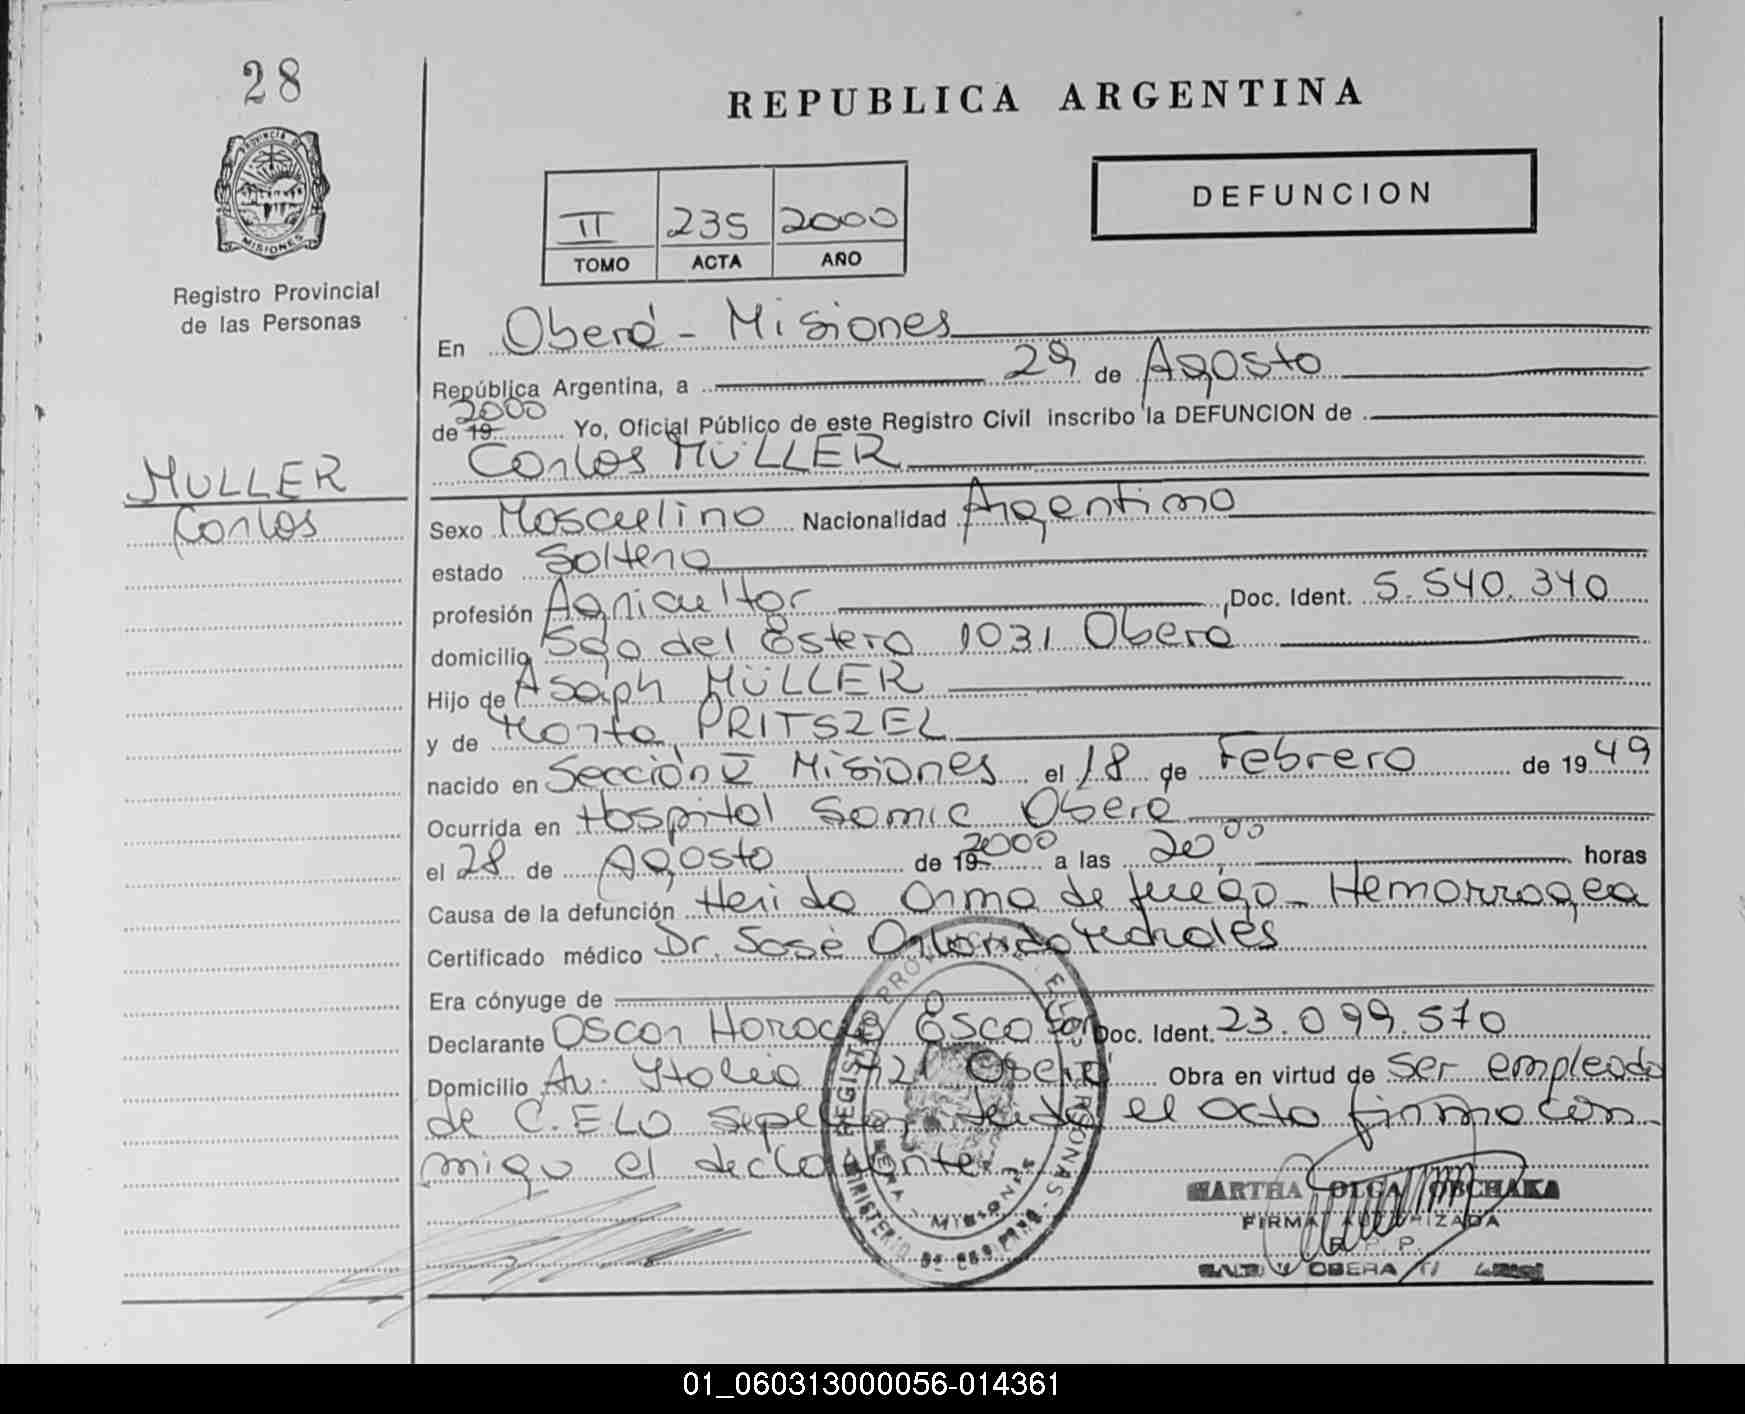 28
PROVINCIA DE
MISIONES
Registro Provincial
de las Personas
REPUBLICA ARGENTINA
DEFUNCION
II 235 2000
TOMO ACTA AÑO
En Oberá - Misiones
República Argentina, a 29 de Agosto
2000
de 19 Yo, Oficial Público de este Registro Civil inscribo la DEFUNCION de
Carlos MÜLLER
MULLER
Carlos
Sexo Masculino Nacionalidad Argentino
estado Soltero
profesión Agricultor Doc. Ident. 5.540.340
domicilio Sgo del Estero 1031 Oberá
Hijo de Asaph MÜLLER
y de Marta PRITSZEL
nacido en Sección V Misiones el 18 de Febrero de 1949
Ocurrida en Hospital Samic Oberá
el 28 de Agosto de 19 2000 a las 20,00 horas
Causa de la defunción Herida Arma de fuego - Hemorragea
Certificado médico Dr. José Orlando
Era cónyuge de
Declarante Oscar Horacio Escobar Doc. Ident. 23.099.570
Domicilio Av. Italia 421 Oberá Obra en virtud de ser empleado
de C.E.L.O el acta firma con
migo el declarante
MARTHA OLGA OBCHAKA
FIRMA AUTORIZADA
R. P. P.
OBERA
MISIONES
01_060313000056-014361